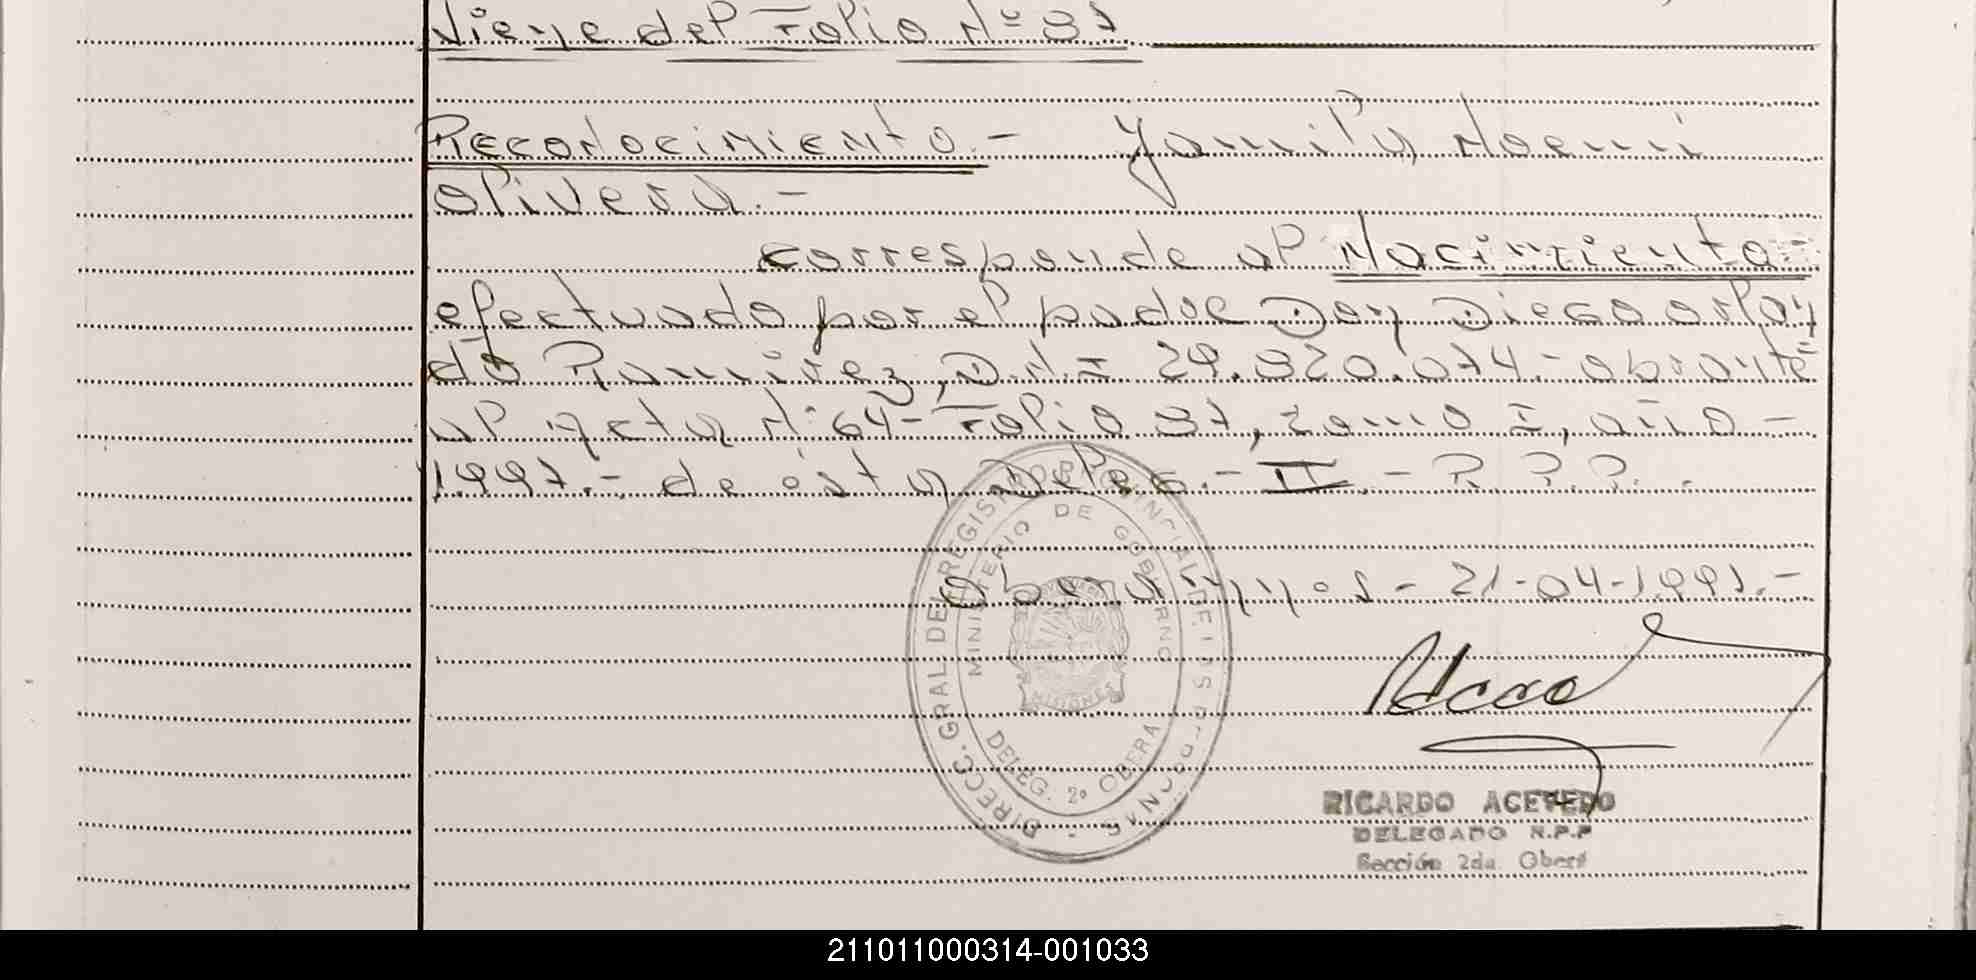 Viene del Folio Nº 37
Reconocimiento.- Yamila Noemi
Olivera.-
corresponde al Nacimiento-
efectuado por el padre Don Diego Orlan
do Ramirez, D.N.I 29.320.074.- obrante
al Acta Nº 64- Folio 37, Tomo I, año -
1997.- de ésta Deleg.- II.-
Oberá, Mnes - 21-04-1997.-
DIRECC. GRAL DEL REGISTRO PROVINCIAL DE LAS PERSONAS
MINISTERIO DE GOBIERNO
MISIONES
DELEG. 2ª OBERA
RICARDO ACEVEDO
DELEGADO R.P.P
Sección 2da. Oberá
211011000314-001033